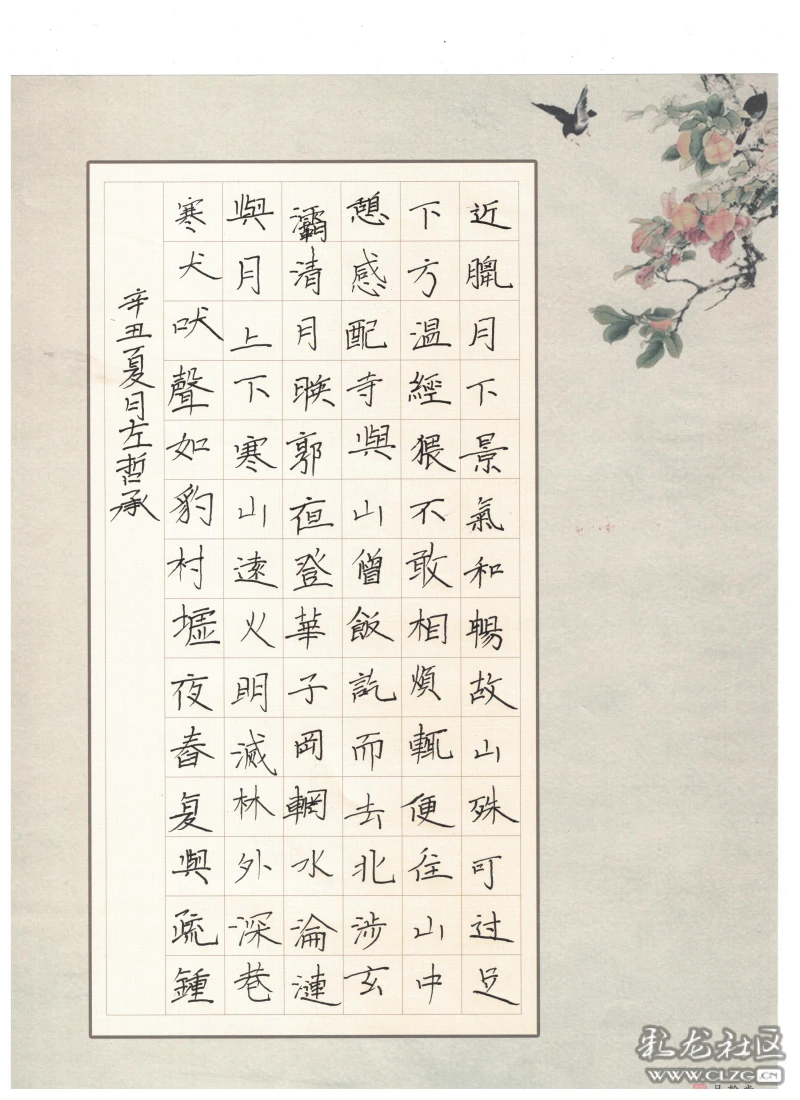 近臘月下景氣和暢故山殊可过足
下方温經猥不敢相煩輒便往山中
憩感配寺與山僧飯訖而去北涉玄
灞清月暎郭夜登華子岡輞水淪漣
與月上下寒山遠火明滅林外深巷
寒犬吠聲如豹村墟夜舂复與疏鍾
辛丑夏月左哲承
彩龙社区
WWW.CLZG.CN